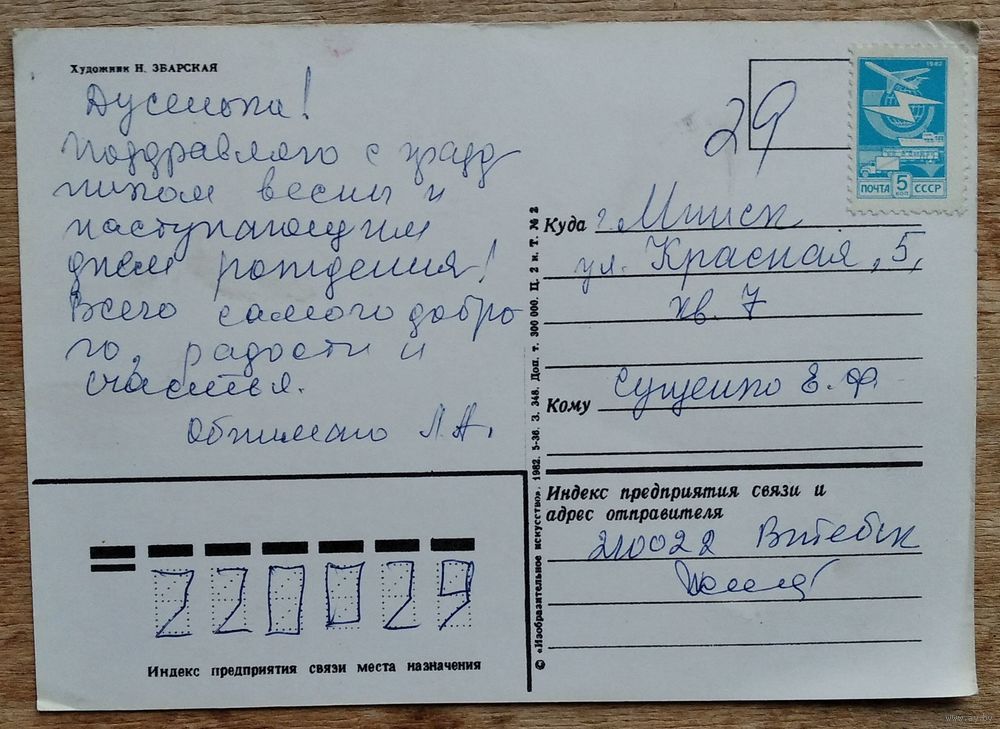 Художник Н. ЗБАРСКАЯ
Дусенька!
Поздравляю с празд
ником весны и
наступающим
днем рождения!
Всего самого добро
го, радости и
счастья.
Обнимаю Л.А.
29
1982
ПОЧТА 5 КОП СССР
Куда г. Минск
ул. Красная, 5,
кв. 7
Кому Сущенко Е. Ф.
Индекс предприятия связи и
адрес отправителя
210022 Витебск
220029
Индекс предприятия связи места назначения
© «Изобразительное искусство». 1982. 5-36. З. 348. Доп. т. 300 000. Ц. 2 к. Т. № 2
www.ay.by